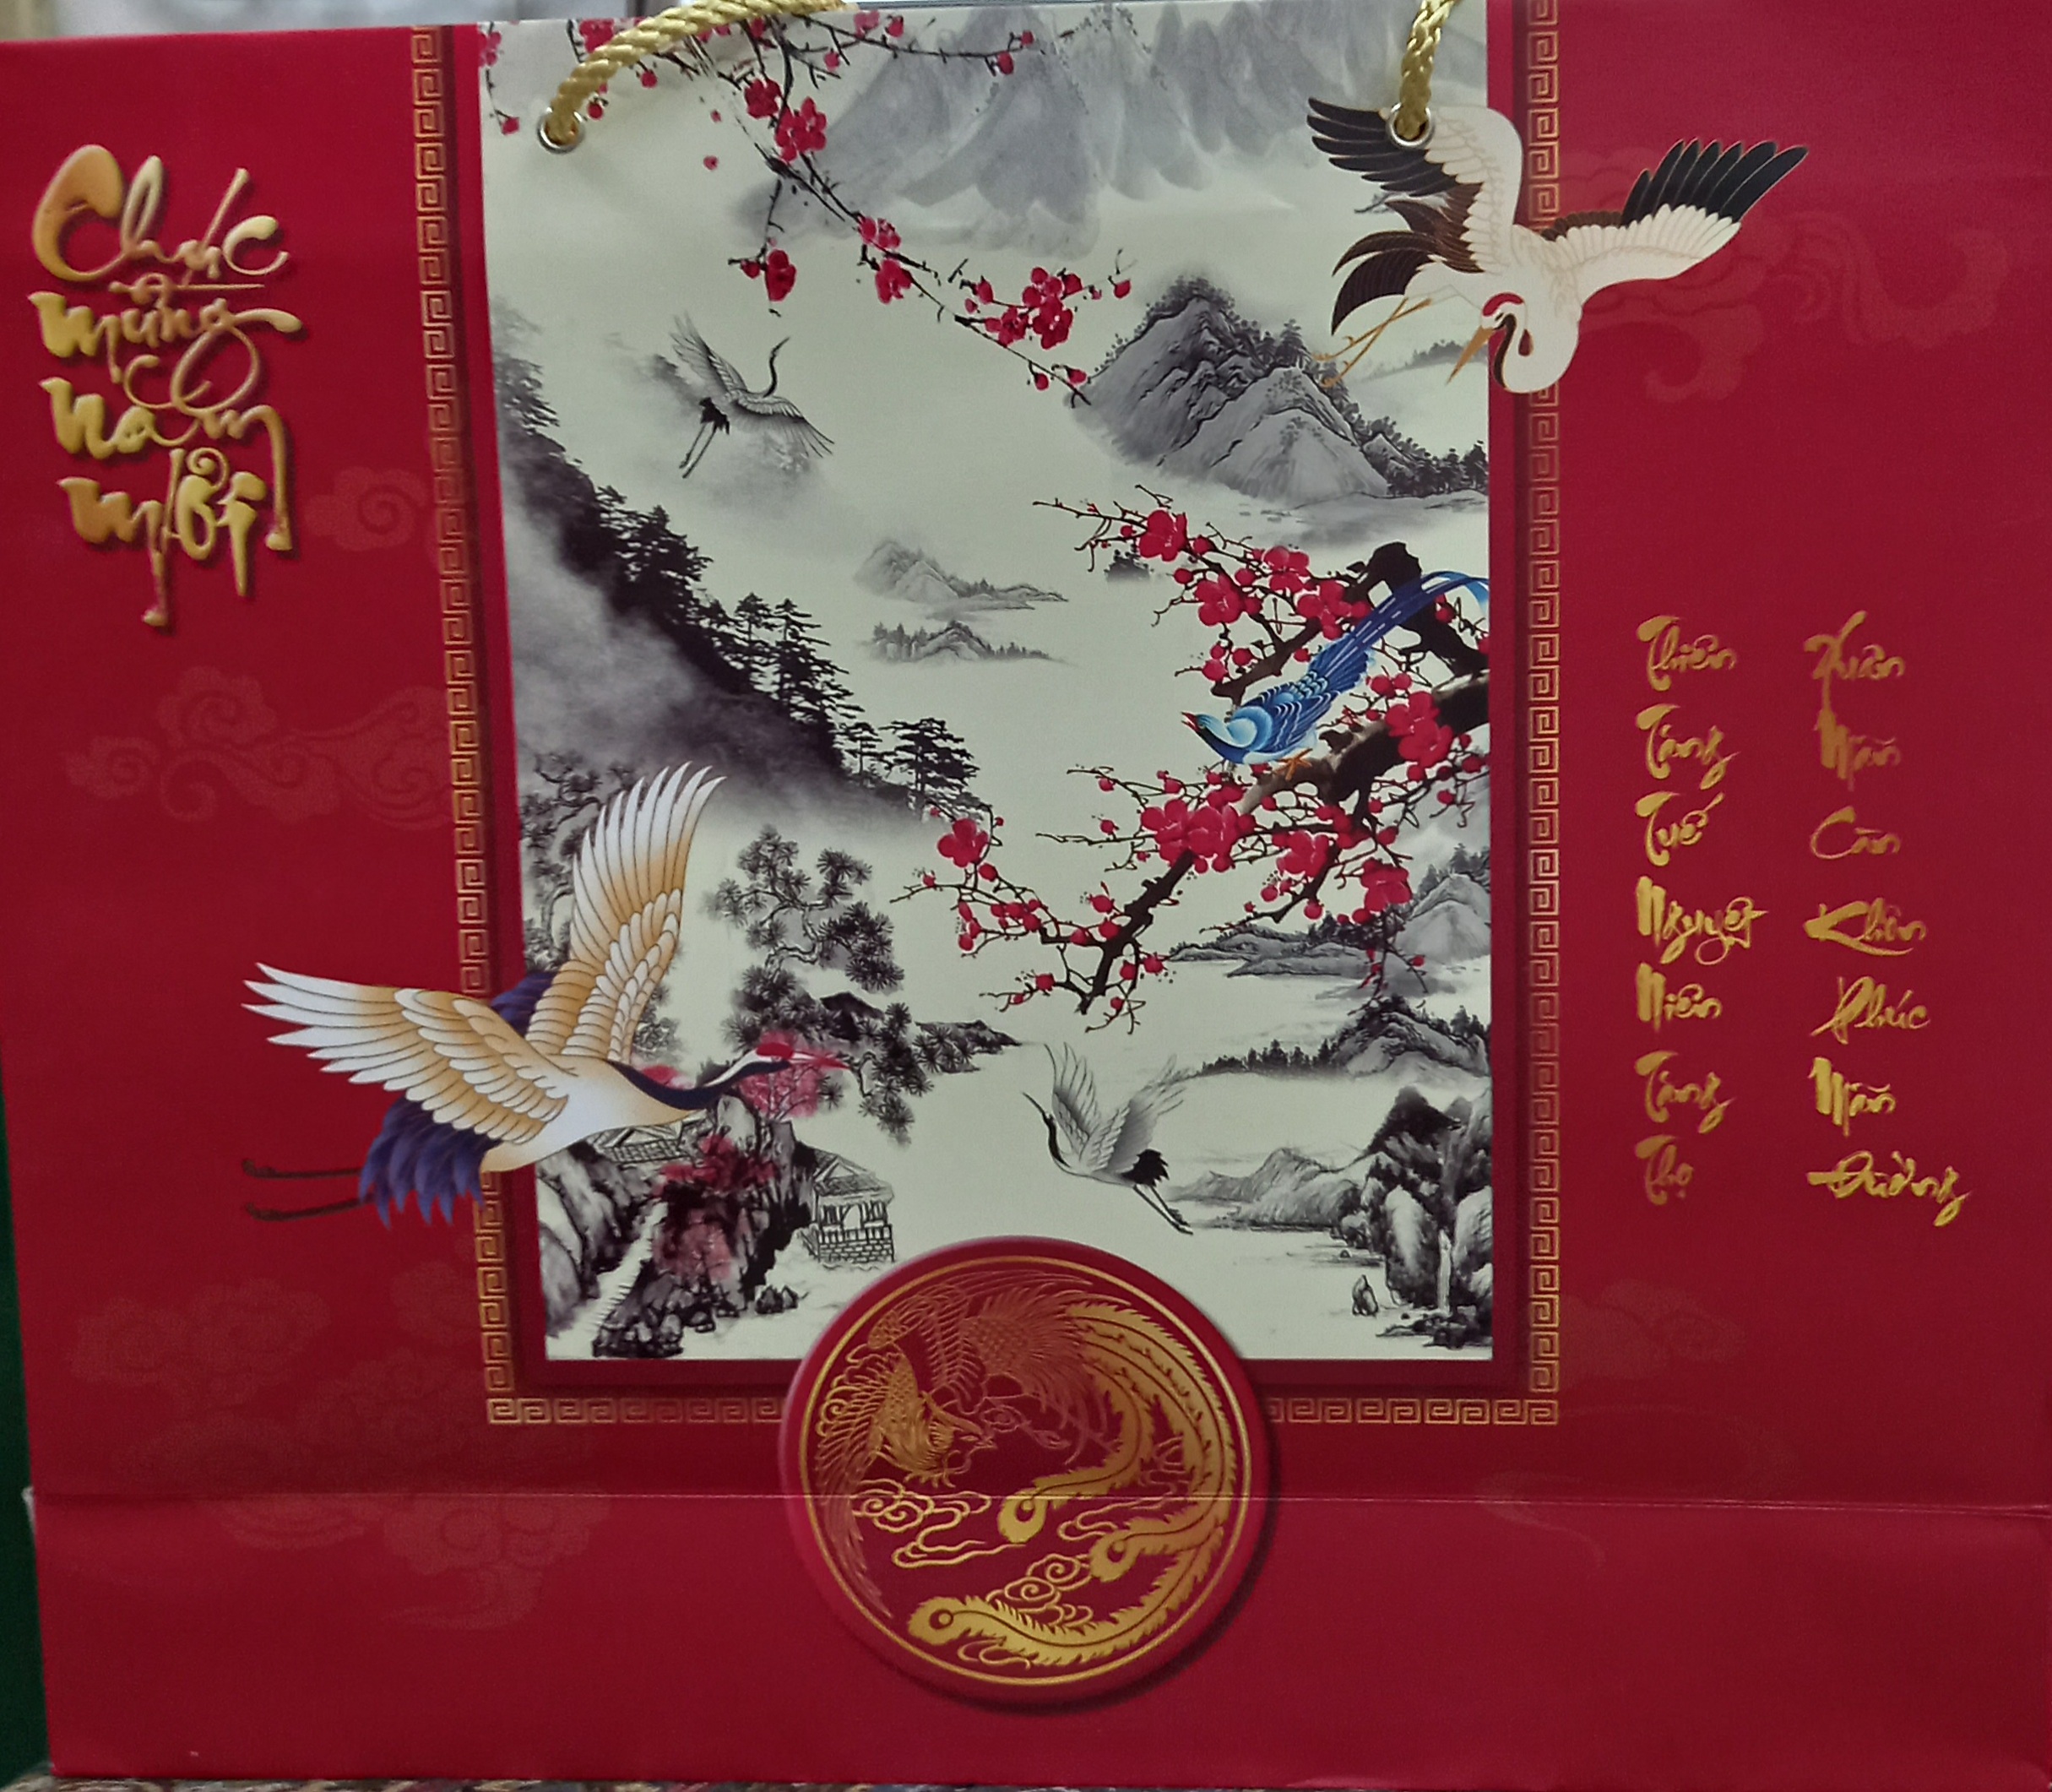 Chúc
mừng
năm
mới
Thiên Xuân
Tăng Mãn
Tuế Càn
Nguyệt Khôn
Niên Phúc
Tăng Mãn
Thọ Đường